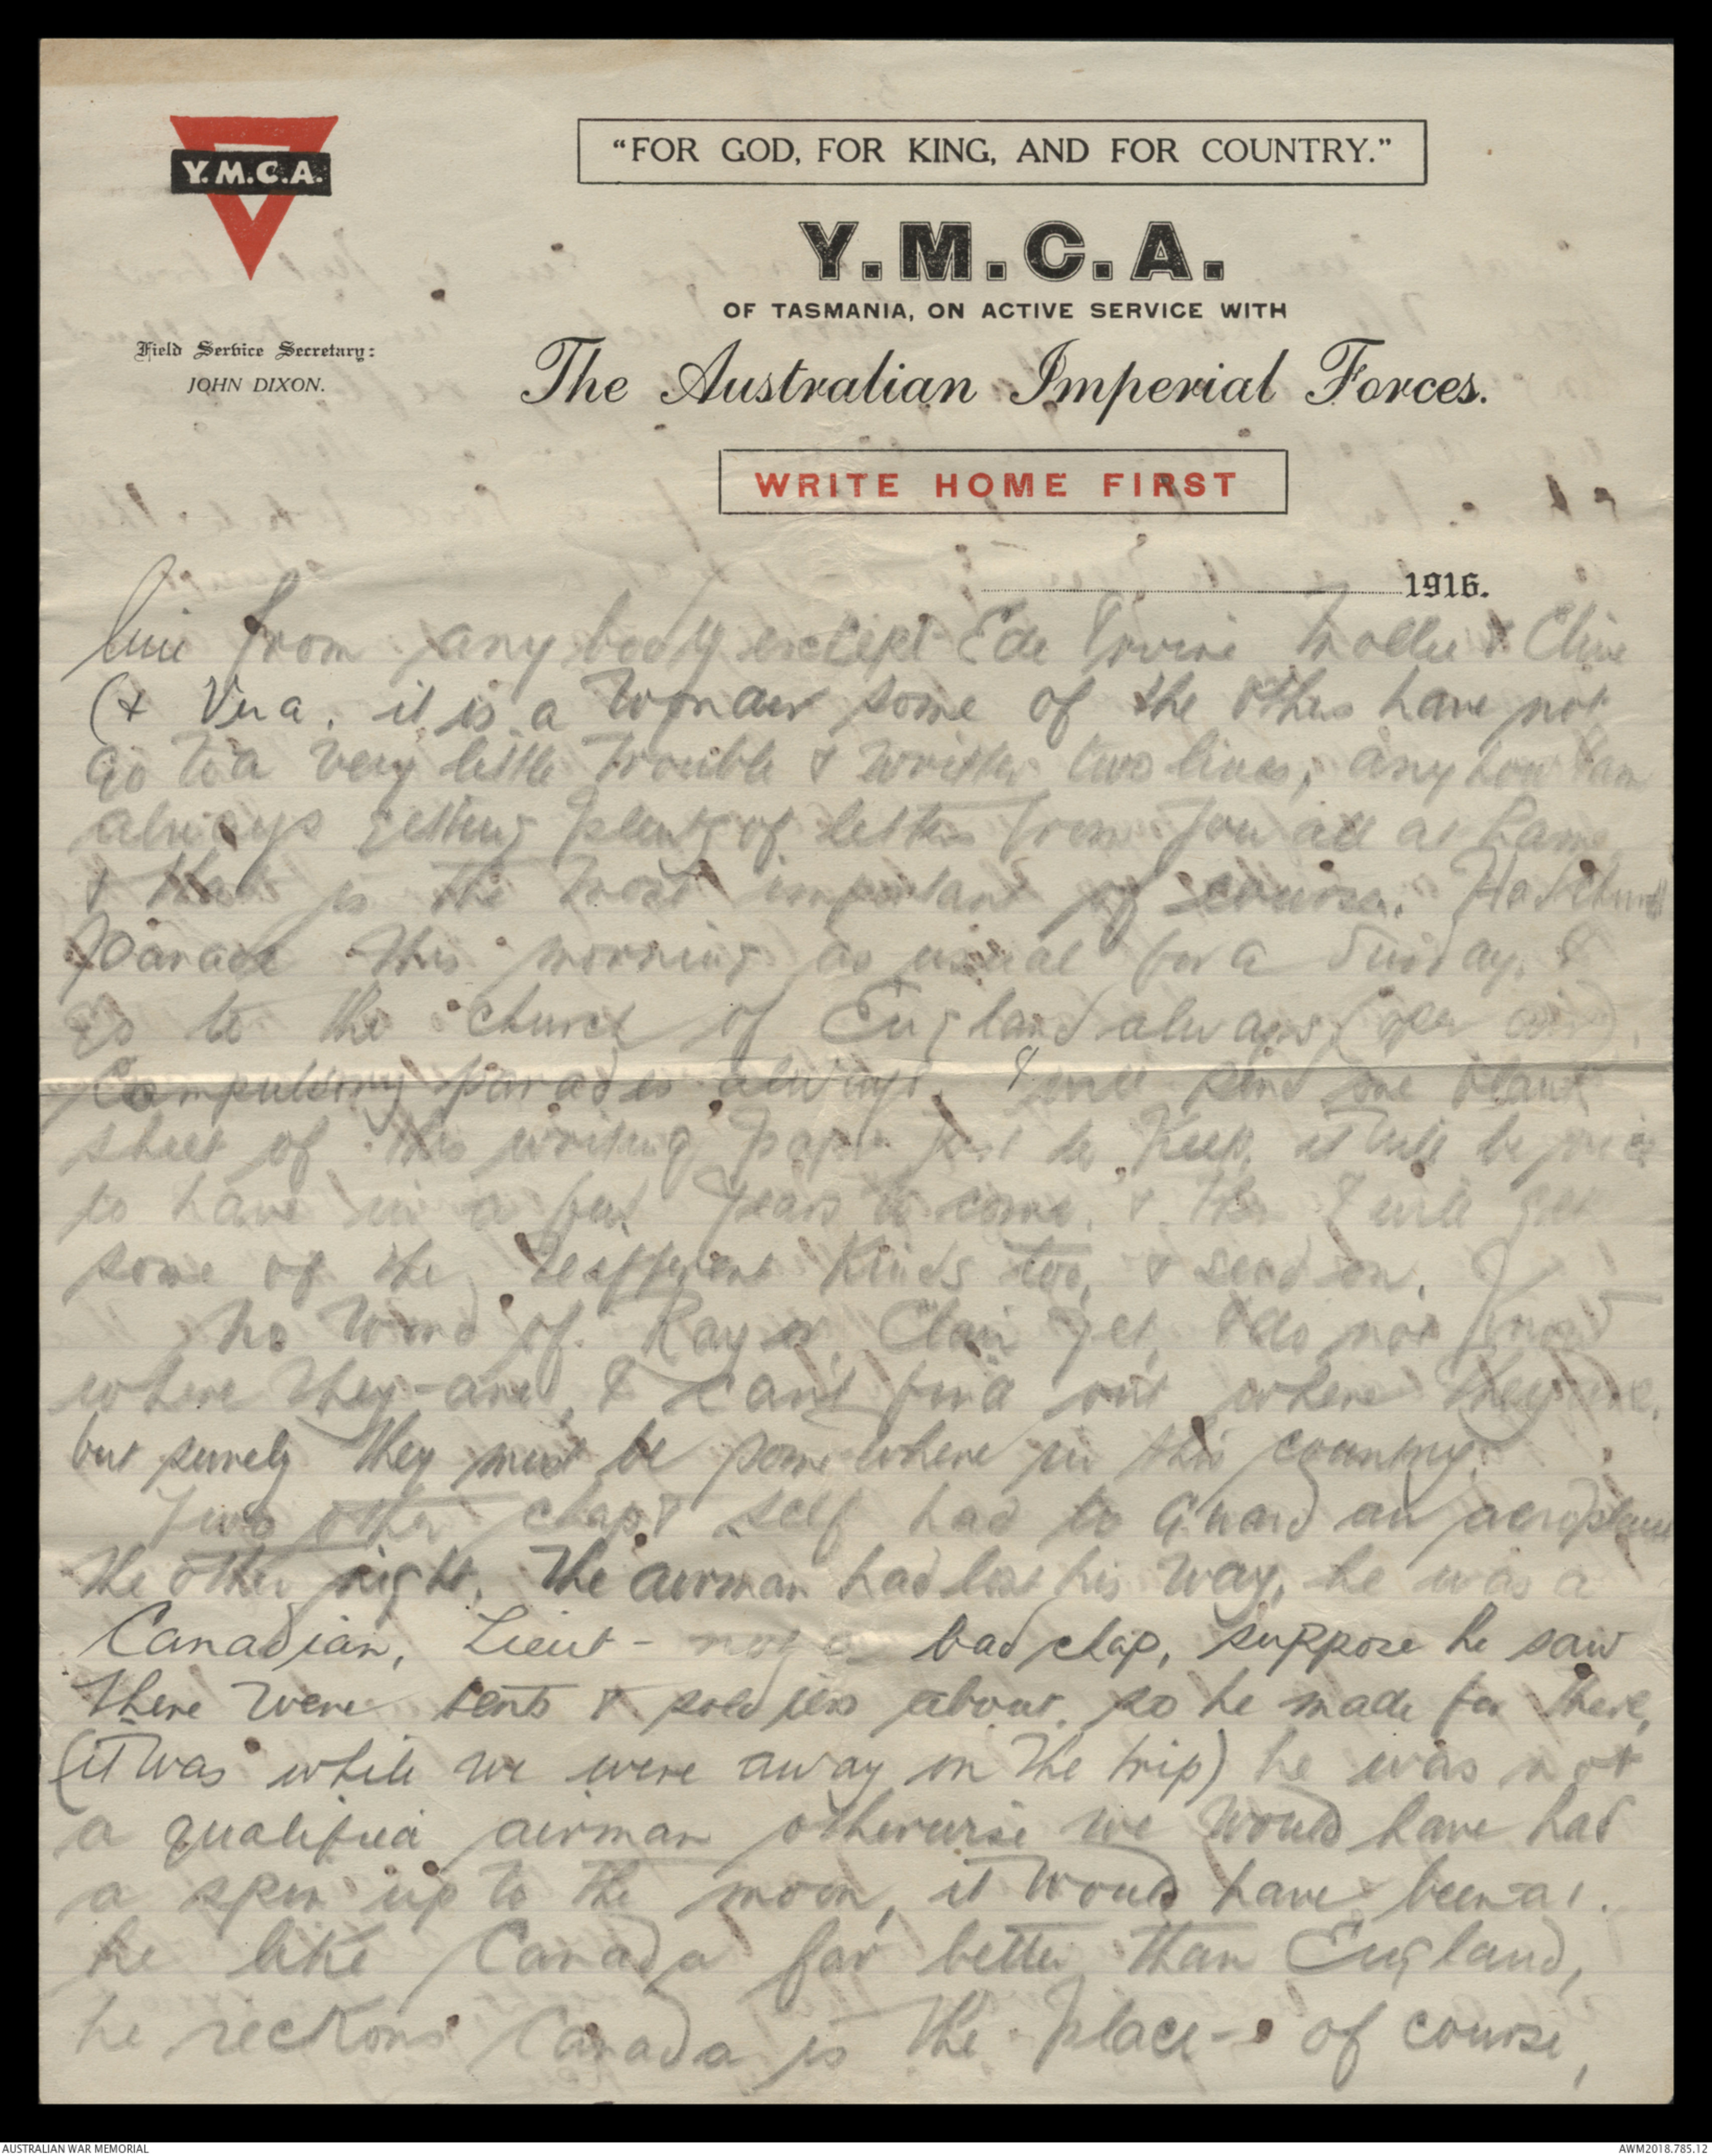 "FOR GOD, FOR KING, AND FOR COUNTRY."
Y.M.C.A.
Y.M.C.A.
OF TASMANIA, ON ACTIVE SERVICE WITH
Field Service Secretary:
JOHN DIXON.
The Australian Imperial Forces.
WRITE HOME FIRST
1916.
line from any body except Ede Irvine Mollie & Clive
(& Vera, it is a wonder some of the others have not
go to a very little trouble & written two lines, anyhow I am
always getting plenty of letters from you all at home
& that is the most important of course. Had church
Parade this morning as usual for a Sunday, I
go to the church of England always (open air).
Compulsory parades always. I will send one blank
sheet of this writing paper just to keep, it will be nice
to have in a few years to come, & then I will get
some of the different kinds too, & send on.
No word of Ray or Clair yet, I do not know
where they are, & can't find out where they are,
but surely they must be somewhere in this country.
Two other chaps & self had to guard an aeroplane
the other night. The airman had lost his way, he was a
Canadian, Lieut - not a bad chap, suppose he saw
there were tents & soldiers about so he made for there,
(it was while we were away on the trip) he was not
a qualified airman otherwise we would have had
a spin up to the moon, it would have been a 1.
he like Canada far better than England,
he reckons Canada is the place - of course,
AUSTRALIAN WAR MEMORIAL
AWM2018.785.12